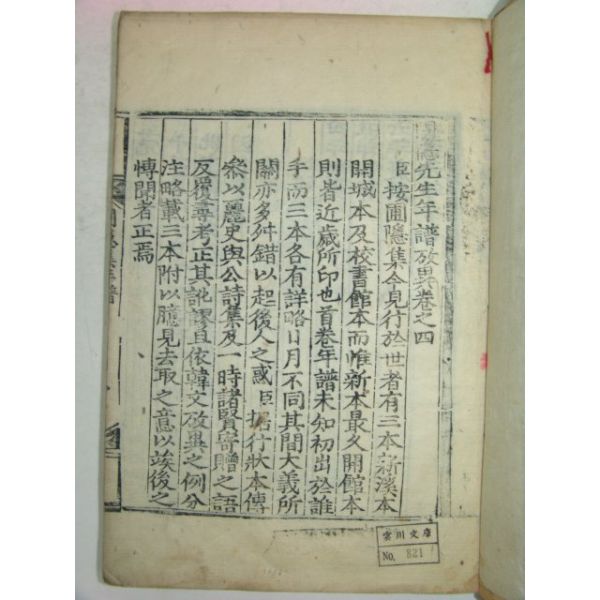 圃隱先生年譜攷異卷之四
臣按圃隱集今見行於世者有三本新溪本
開城本及校書館本而惟新本最久開館本
則皆近歲所印也首卷年譜未知初出於誰
手而三本各有詳略日月不同其間大義所
關亦多舛錯以起後人之惑臣据行狀本傳
叅以麗史與公詩集及一時諸賢寄贈之語
反覆尋考正其訛謬且依韓文攷異之例分
注略載三本附以臆見去取之意以竢後之
博聞者正焉
雲川文庫
No. 821